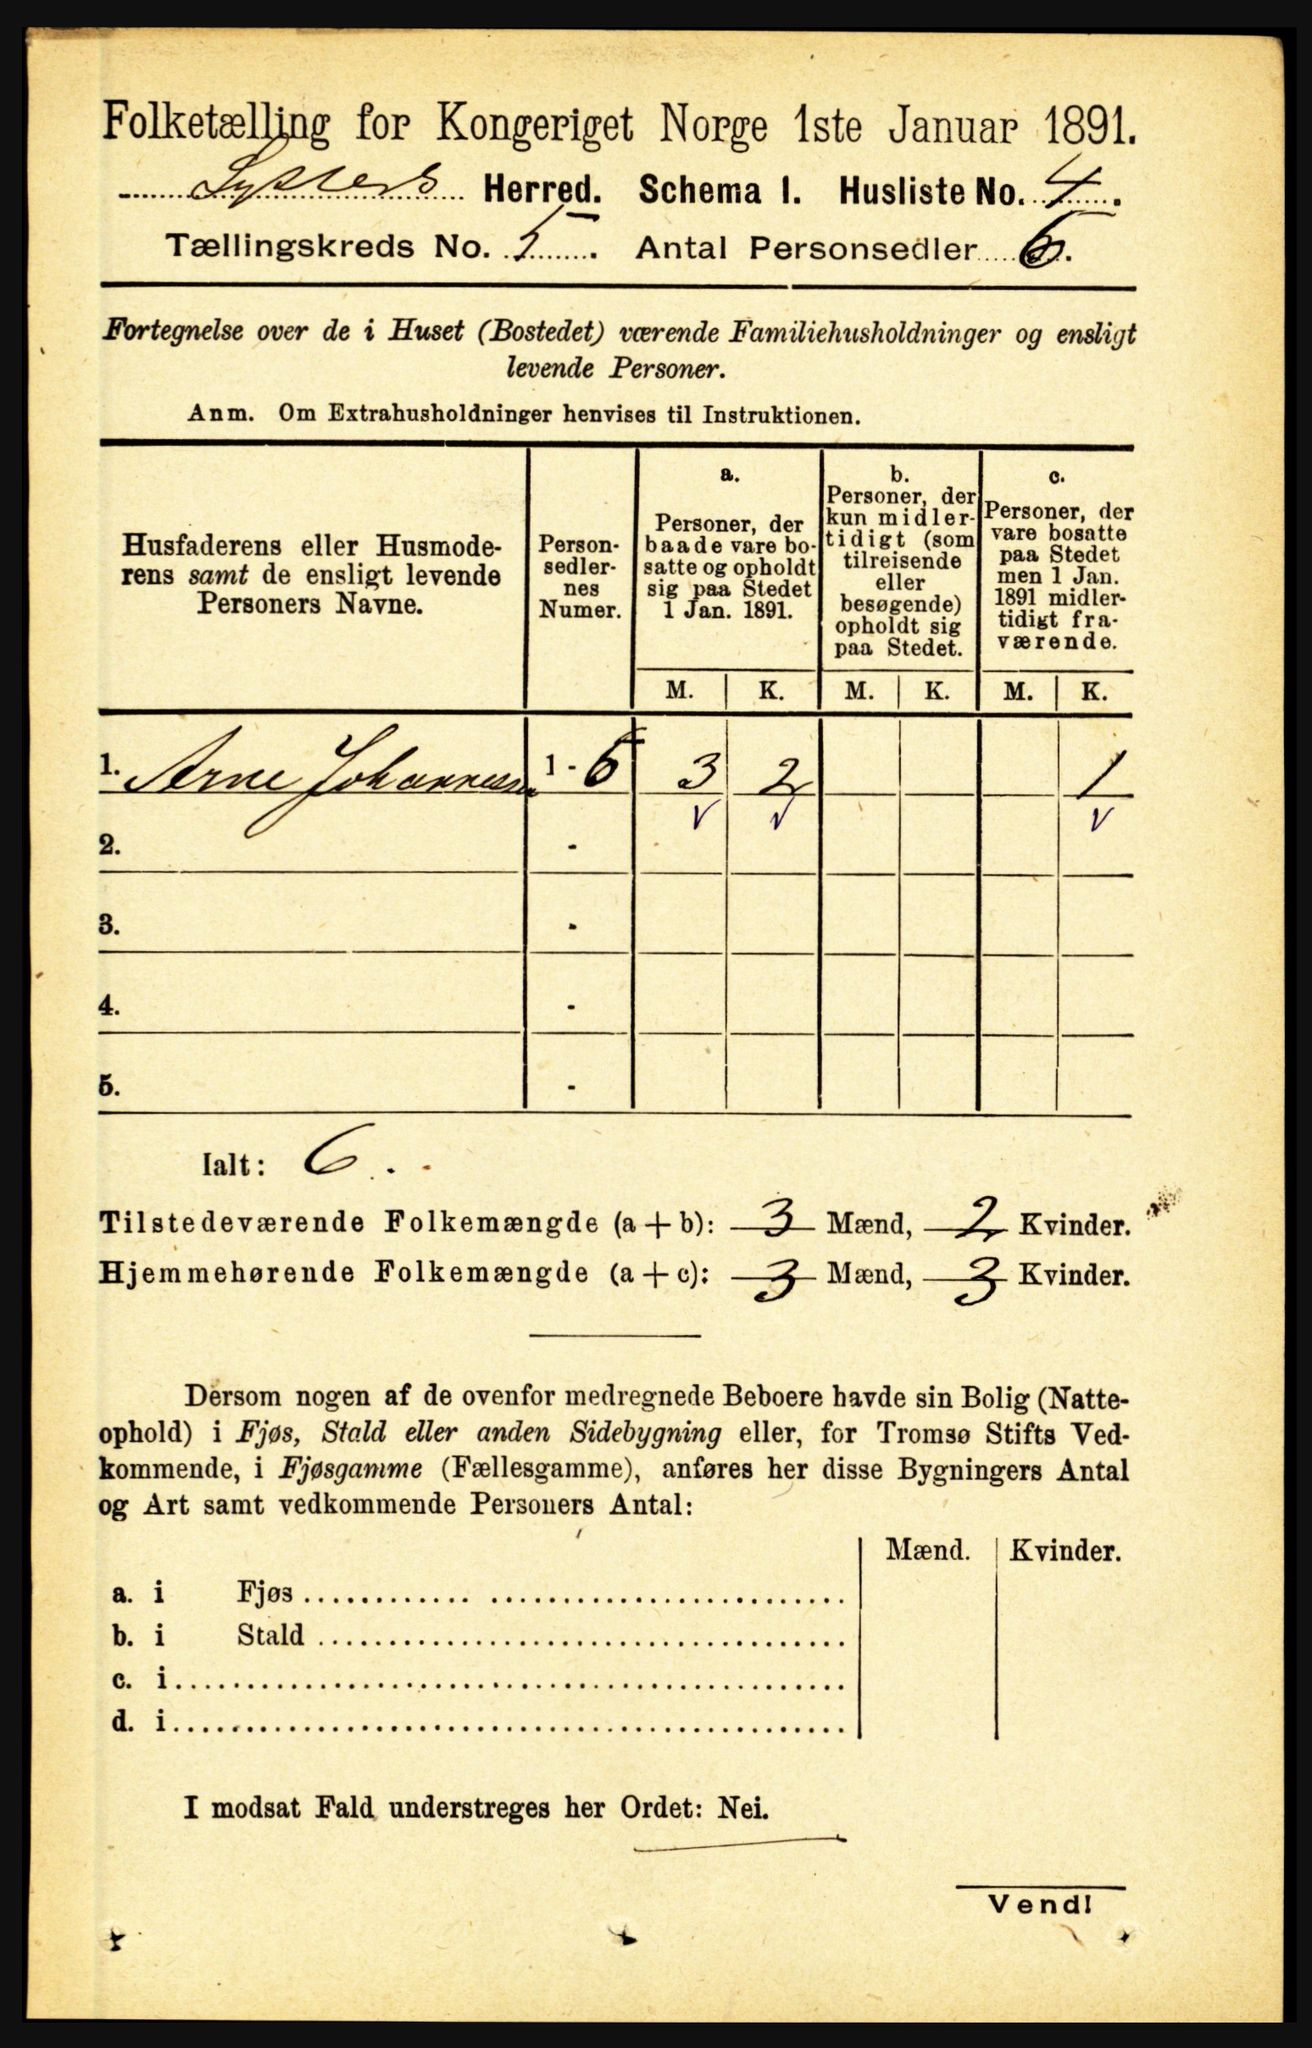 Folketælling for Kongeriget Norge 1ste Januar 1891.
Lysters Herred. Schema I. Husliste No. 4.
Tællingskreds No. 5. Antal Personsedler 6.
Fortegnelse over de i Huset (Bostedet) værende Familiehusholdninger og ensligt
levende Personer.
Anm. Om Extrahusholdninger henvises til Instruktionen.
Husfaderens eller Husmode-
rens samt de ensligt levende
Personers Navne.
Person-
sedler-
nes
Numer.
a.
Personer, der
baade vare bo-
satte og opholdt
sig paa Stedet
1 Jan. 1891.
b.
Personer, der
kun midler-
tidigt (som
tilreisende
eller
besøgende)
opholdt sig
paa Stedet.
c.
Personer, der
vare bosatte
paa Stedet
men 1 Jan.
1891 midler-
tidigt fra-
værende.
M. K. M. K. M. K.
1. Arne Johannessen 1 - 6 3 2 1
v v v
2. -
3. -
4. -
5. -
Ialt: 6.
Tilstedeværende Folkemængde (a + b): 3 Mænd, 2 Kvinder.
Hjemmehørende Folkemængde (a + c): 3 Mænd, 3 Kvinder.
Dersom nogen af de ovenfor medregnede Beboere havde sin Bolig (Natte-
ophold) i Fjøs, Stald eller anden Sidebygning eller, for Tromsø Stifts Ved-
kommende, i Fjøsgamme (Fællesgamme), anføres her disse Bygningers Antal
og Art samt vedkommende Personers Antal:
Mænd. Kvinder.
a. i Fjøs
b. i Stald
c. i
d. i
I modsat Fald understreges her Ordet: Nei.
Vend!